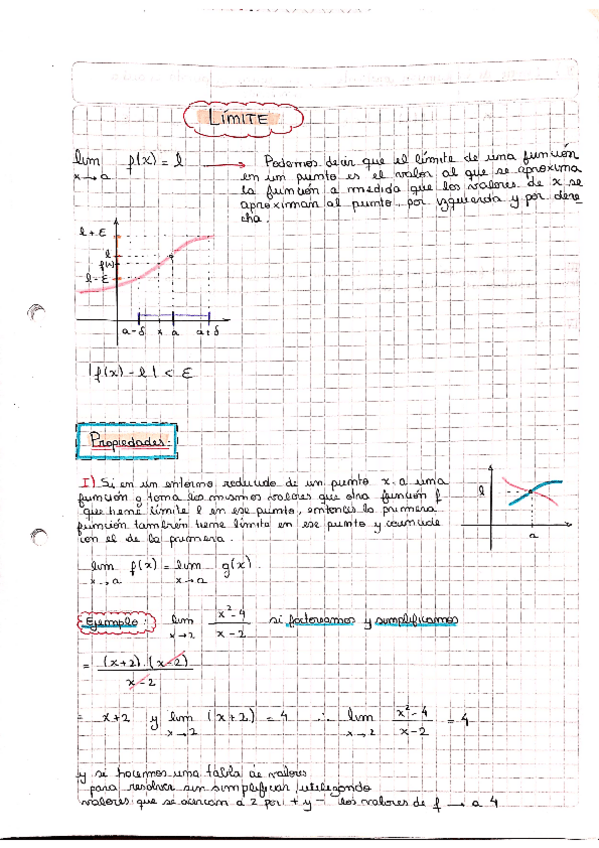 LÍMITE
lim f(x) = l → Podemos decir que el límite de una función
x→a
en un punto es el valor al que se aproxima
la función a medida que los valores de x se
aproximan al punto, por izquierda y por dere
cha.
l + ε
l
f(x)
l - ε
a-δ x a a+δ
|f(x) - l| < ε
Propiedades:
I) Si en un entorno reducido de un punto x.a una
función g toma los mismos valores que otra función f
que tiene límite l en ese punto, entonces la primera
función también tiene límite en ese punto y coincide
con el de la primera.
l
a
lim f(x) = lim g(x)
x→a x→a
Ejemplo: lim x²-4 si factoreamos y simplificamos
x→2 x-2
= (x+2).(x-2)
x-2
= x+2 y lim (x+2) = 4 ∴ lim x²-4 = 4
x→2 x→2 x-2
y si hacemos una tabla de valores
para resolver sin simplificar, utilizando
valores que se acercan a 2 por + y - los valores de f → a 4